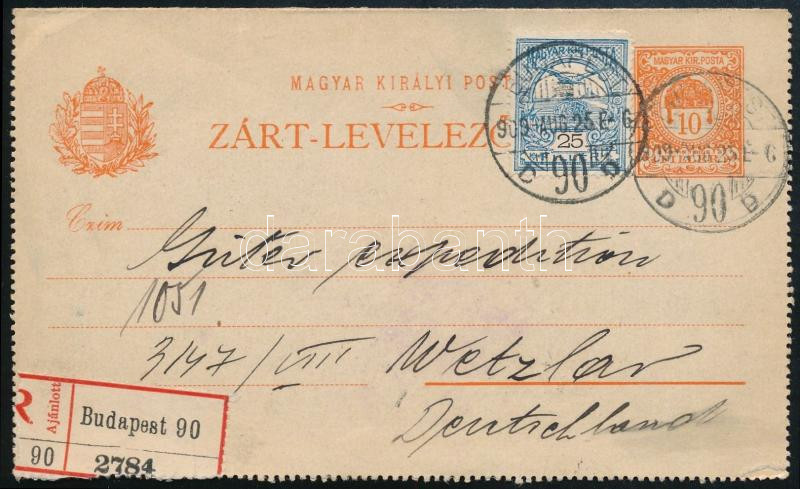 MAGYAR KIRÁLYI POST
ZÁRT-LEVELEZŐ
MAGYAR KIR. POSTA
25
MAGYAR KIR. POSTA
10
909 AUG 25 E-6
D 90 D
909 AUG 25 E-6
D 90 D
Czim
Güter expedition
1051
3147/VIII Wetzlar
Deutschland
R Ajánlott Budapest 90
90 2784
darabanth